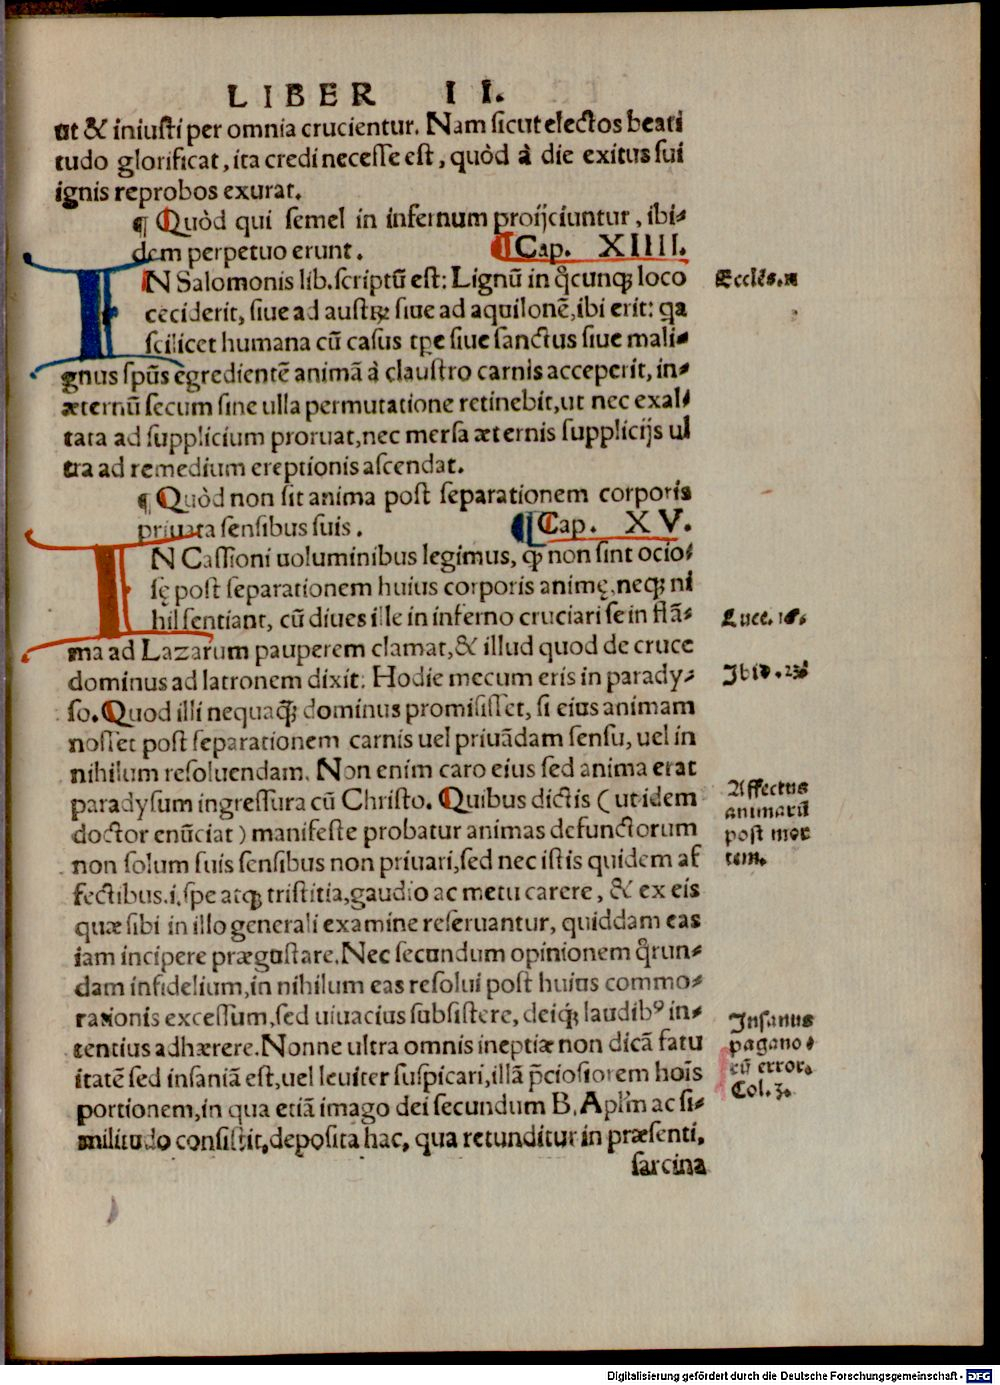 LIBER II.
ut & iniusti per omnia crucientur. Nam sicut electos beati
tudo glorificat, ita credi necesse est, quòd à die exitus sui
ignis reprobos exurat.
¶ Quòd qui semel in infernum proijciuntur, ibi-
dem perpetuo erunt. ¶ Cap. XIIII.
IN Salomonis lib. scriptũ est: Lignũ in q̊cunqꝫ loco
Eccles. 11
ceciderit, siue ad austrꝝ siue ad aquilonẽ, ibi erit: qa
scilicet humana cũ casus tpe siue sanctus siue mali-
gnus spũs egredientẽ animã à claustro carnis acceperit, in-
æternũ secum sine ulla permutatione retinebit, ut nec exal-
tata ad supplicium proruat, nec mersa æternis supplicijs ul
tra ad remedium ereptionis ascendat.
¶ Quòd non sit anima post separationem corporis
priuata sensibus suis. ¶ Cap. XV.
IN Cassioni uoluminibus legimus, ꝙ non sint ocio-
sę post separationem huius corporis animę, neqꝫ ni
hil sentiant, cũ diues ille in inferno cruciari se in flã-
Luce. 16.
ma ad Lazarum pauperem clamat, & illud quod de cruce
dominus ad latronem dixit: Hodie mecum eris in parady-
Ibid. 23
so. Quod illi nequaq̃ꝫ dominus promisisset, si eius animam
nosset post separationem carnis uel priuãdam sensu, uel in
nihilum resoluendam. Non enim caro eius sed anima erat
paradysum ingressura cũ Christo. Quibus dictis (ut idem
Affectus
animarũ
post mor
tem.
doctor enũciat) manifeste probatur animas defunctorum
non solum suis sensibus non priuari, sed nec istis quidem af
fectibus. i. spe atqꝫ tristitia, gaudio ac metu carere, & ex eis
quæ sibi in illo generali examine reseruantur, quiddam eas
iam incipere prægustare. Nec secundum opinionem q̊run-
dam infidelium, in nihilum eas resolui post huius commo-
rationis excessum, sed uiuacius subsistere, deiqꝫ laudibꝰ in-
Insanus
pagano-
rũ error.
Col. 3.
tentius adhærere. Nonne ultra omnis ineptiæ non dicã fatu
itatẽ sed insaniã est, uel leuiter suspicari, illã p̃ciosiorem hoĩs
portionem, in qua etiã imago dei secundum B. Apl'm ac si-
militudo consistit, deposita hac, qua retunditur in præsenti,
sarcina
Digitalisierung gefördert durch die Deutsche Forschungsgemeinschaft - DFG